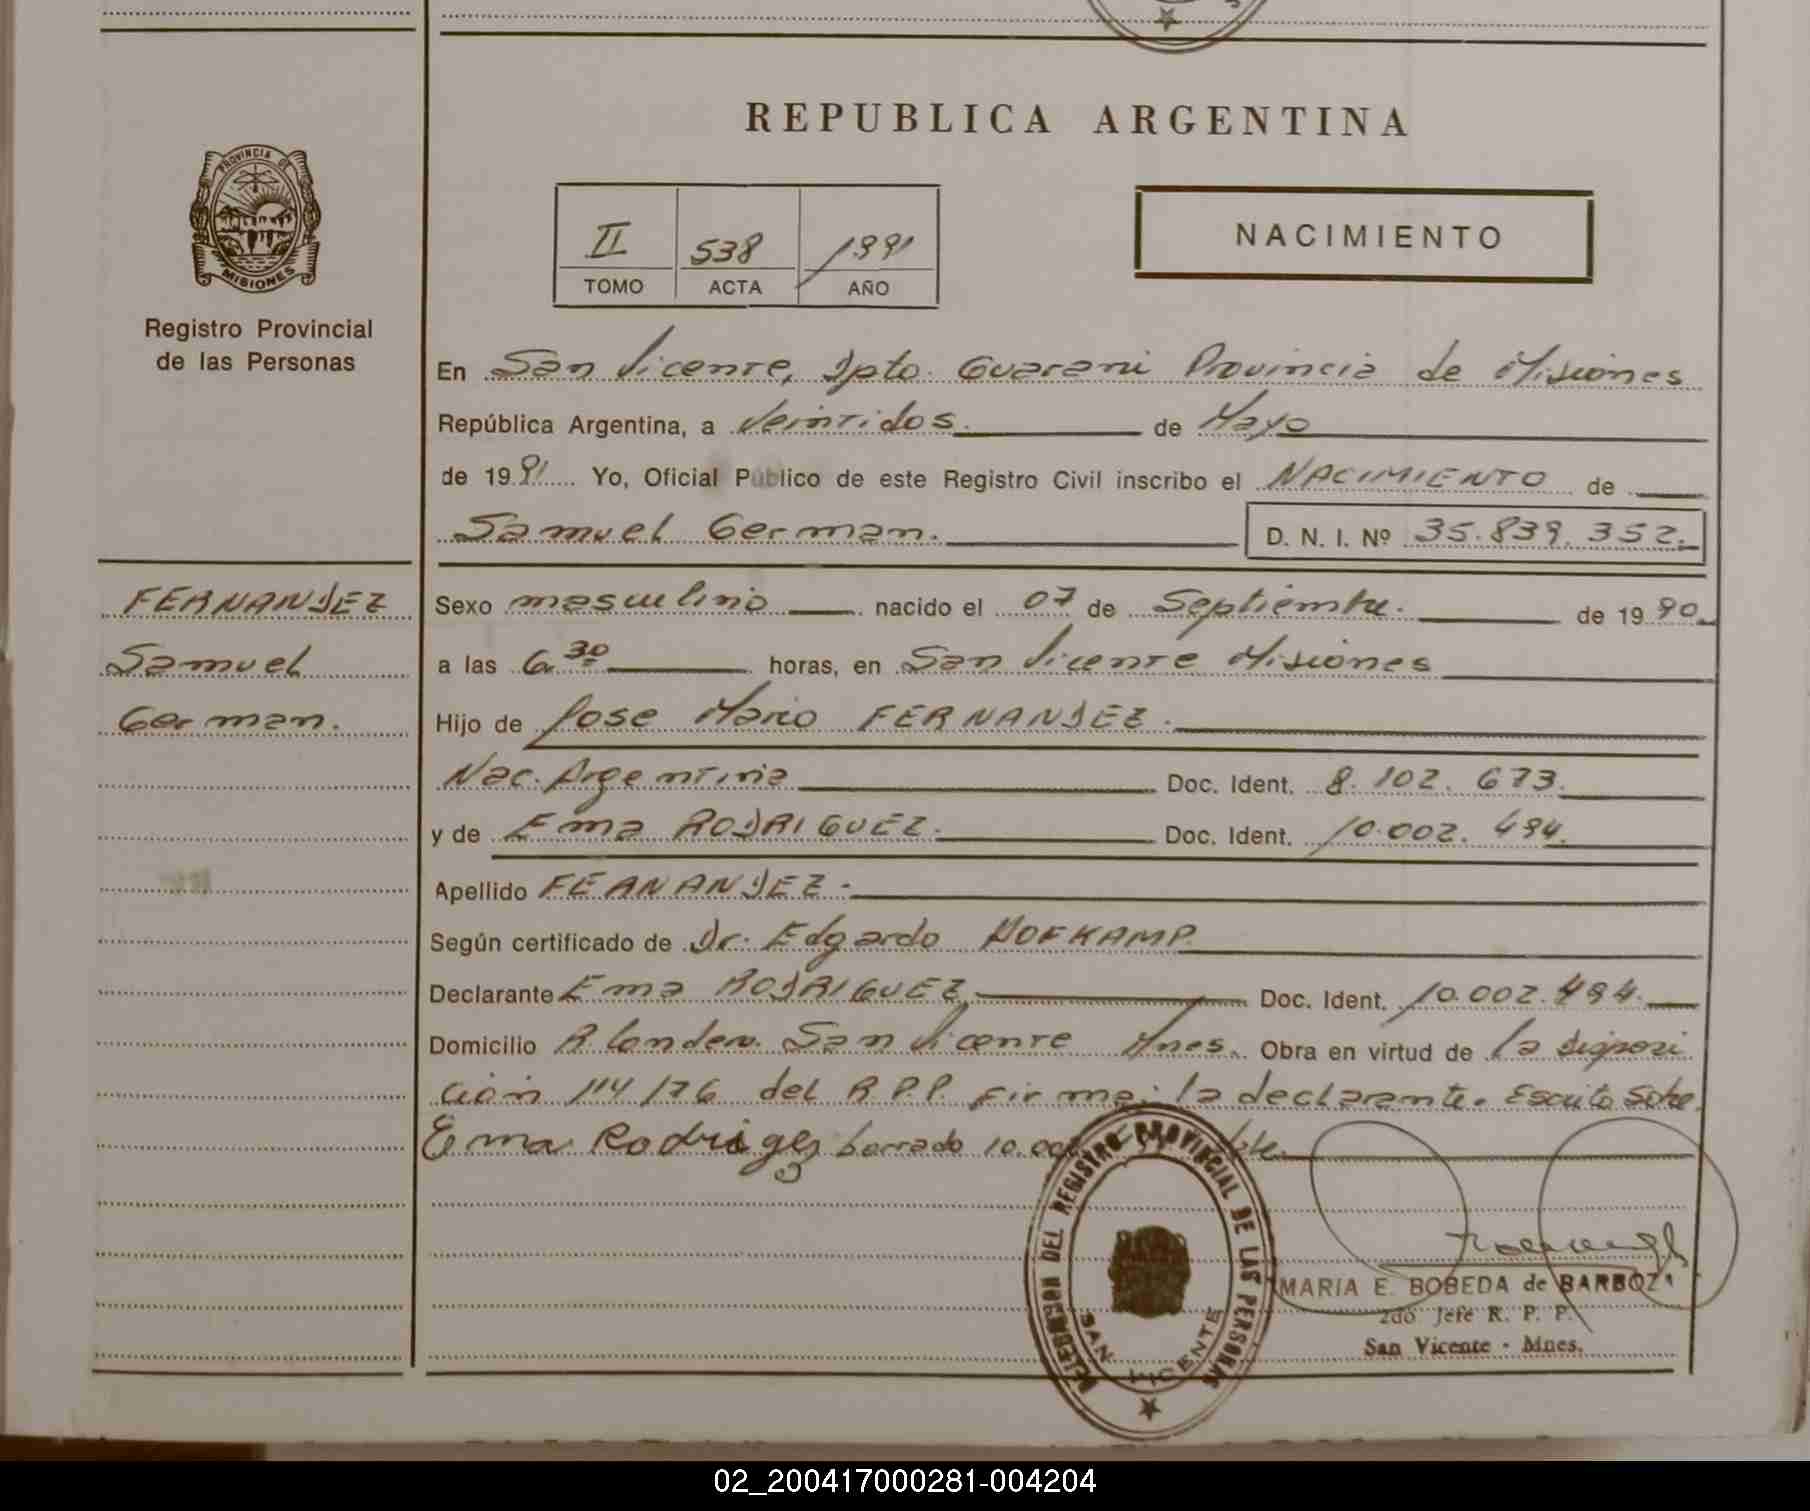 REPUBLICA ARGENTINA
PROVINCIA DE
MISIONES
Registro Provincial
de las Personas
II 538 1991
TOMO ACTA AÑO
NACIMIENTO
En San Vicente, Dpto. Guarani Provincia de Misiones
República Argentina, a Veintidos. de Mayo
de 1991 Yo, Oficial Público de este Registro Civil inscribo el NACIMIENTO de
Samuel German. D. N. I. Nº 35.839.352.
FERNANDEZ
Samuel
German.
Sexo masculino nacido el 07 de Septiembre. de 1990
a las 6.30 horas, en San Vicente Misiones
Hijo de Jose Mario FERNANDEZ.
Nac. Argentina Doc. Ident. 8.102.673.
y de Ema RODRIGUEZ. Doc. Ident. 10.002.494.
Apellido FERNANDEZ.
Según certificado de Dr. Edgardo HOFKAMP.
Declarante Ema RODRIGUEZ, Doc. Ident. 10.002.494.
Domicilio San Vicente Mnes. Obra en virtud de la disposi
ción 114/76 del R.P.P. Firma: la declarante. Escrito sobre
Ema Rodrigez borrado 10.002 Vale.
DELEGACION DEL REGISTRO PROVINCIAL DE LAS PERSONAS
SAN VICENTE
MARIA E. BOBEDA de BARBOZA
2do Jefe R. P. P.
San Vicente - Mnes.
02_200417000281-004204